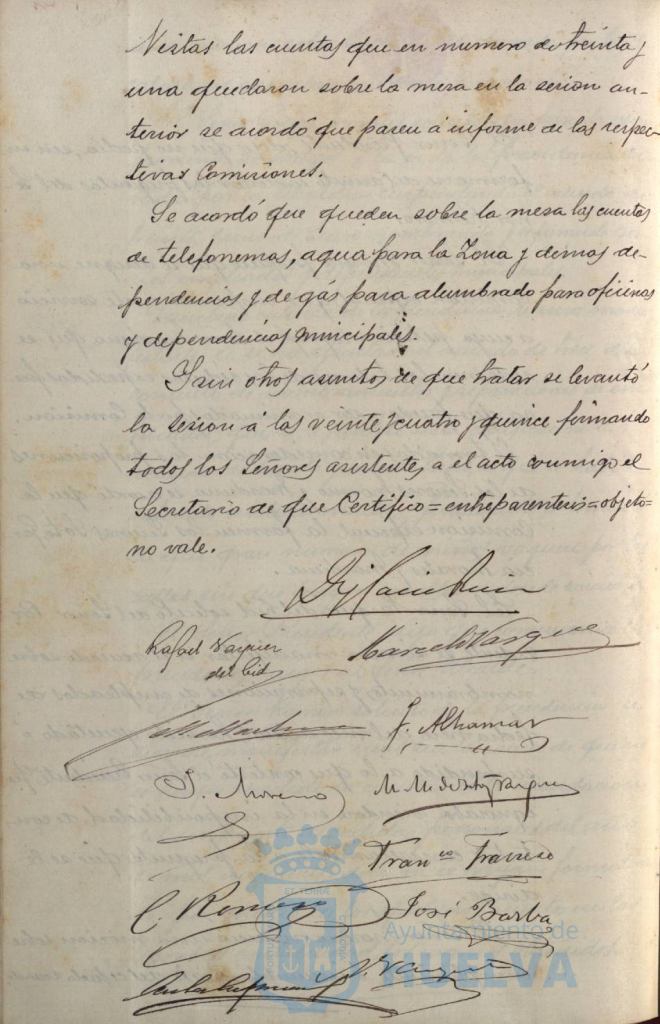 Vistas las cuentas que en numero de treinta y
una quedaron sobre la mesa en la sesion an-
terior se acordó que pasen á informe de las respec-
tivas Comisiones.
Se acordó que queden sobre la mesa las cuentas
de telefonemas, agua para la Zona y demas de-
pendencias y de gás para alumbrado para oficinas
y dependencias municipales.
Y sin otros asuntos de que tratar se levantó
la sesion á las veinte y cuatro y quince firmando
todos los Señores asistentes a el acto conmigo el
Secretario de que Certifico = entreparentesis = objeto =
no vale.
Rafael Vazquez
del Cid
Marcelo Vazquez
J. Alhamar
J. Moreno
M. M.
Vazquez
Fran.co Travieso
C. Romero
José Barba
Vazquez
Ayuntamiento de
HUELVA